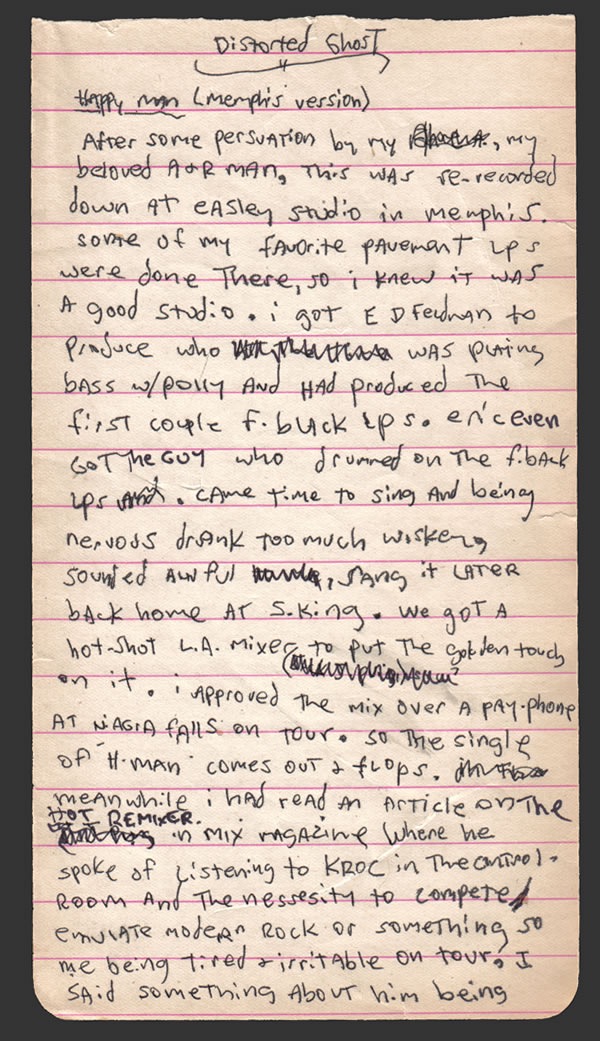 Distorted Ghost
Happy man (memphis version)
After some persuation by my, my
beloved A+R MAN, This WAS re-recorded
down AT eASley studio in memphis.
some of my fAvorite pavement Lps
were done There, so i knew it WAS
A good studio. i got E D Feldman to
produce who WAS plAing
bASS w/polly AND HAD produced The
first couple f. black Lps. eric even
GOT The GUY who drummed on The f.bAck
Lps. CAme time to sing And being
nervous drank too much wiskey,
sounted Awful, sang it LATER
bAck home AT S. King. we got A
hot-shot L.A. mixer to put The golden touch
on it. i Approved The mix over A pAy-phone
AT NiAGrA fAlls on Tour. so The single
of "H.man" comes out & flops.
meanwhile i hAd read An Article on The
HOT REMIXER.
in mix magazine where he
spoke of Listening to KROC in The control-
ROOM And The nessesity to compete/
emulAte modern Rock or something so
me being tired & irritable on tour, I
SAid something About him being